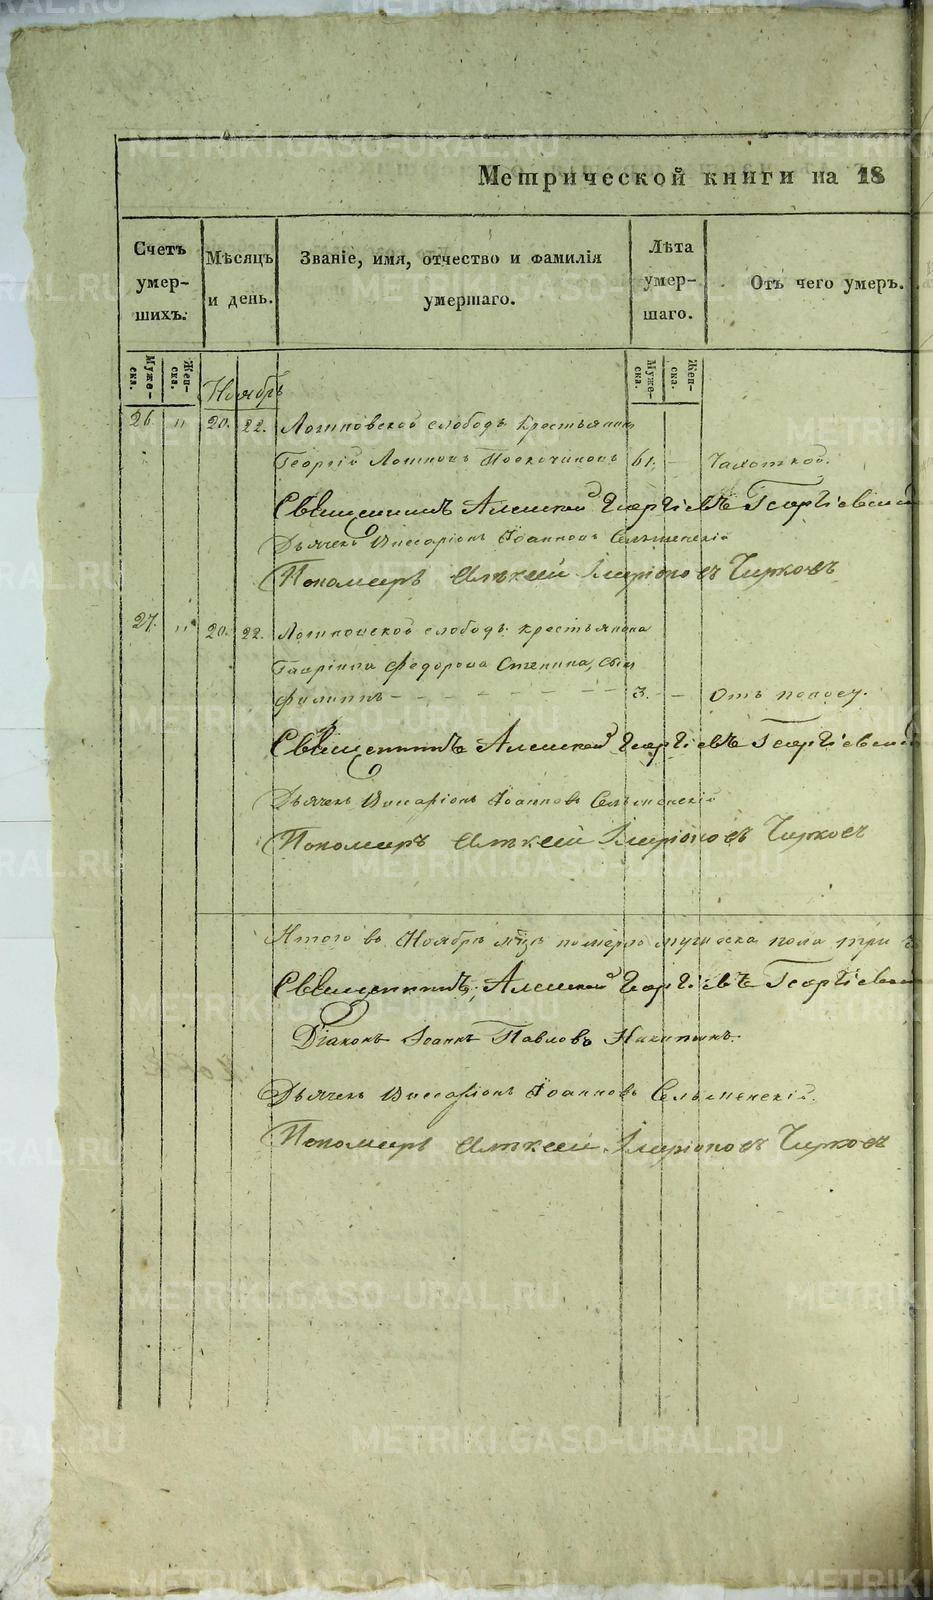 Метрической книги на 18
Счетъ умер-шихъ.
Мѣсяцъ и день.
Званіе, имя, отчество и фамилія умершаго.
Лѣта умер-шаго.
Отъ чего умеръ.
Муже-ска.
Жен-ска.
Ноябрь
Муже-ска.
Жен-ска.
26. " 20. 22. Логиновской слободы крестьянинъ
Георгій Логиновъ 61. — Чахоткой.
Священникъ Алексей Георгіевъ Георгіевскій
Дьячекъ Виссаріонъ Іоанновъ Сельменскій
Пономарь Алексей Иларіоновъ Чирковъ
27. " 20. 22. Логиновской слободы крестьянина
Гавріила Федорова сынъ
Филиппъ 3. — Отъ поносу.
Священникъ Алексей Георгіевъ Георгіевскій
Дьячекъ Виссаріонъ Іоанновъ Сельменскій
Пономарь Алексей Иларіоновъ Чирковъ
Итого въ Ноябрѣ м-цѣ померло мужеска пола три
Священникъ Алексей Георгіевъ Георгіевскій
Діаконъ Іоаннъ Павловъ Никитинъ.
Дьячекъ Виссаріонъ Іоанновъ Сельменскій.
Пономарь Алексей Иларіоновъ Чирковъ
METRIKI.GASO-URAL.RU